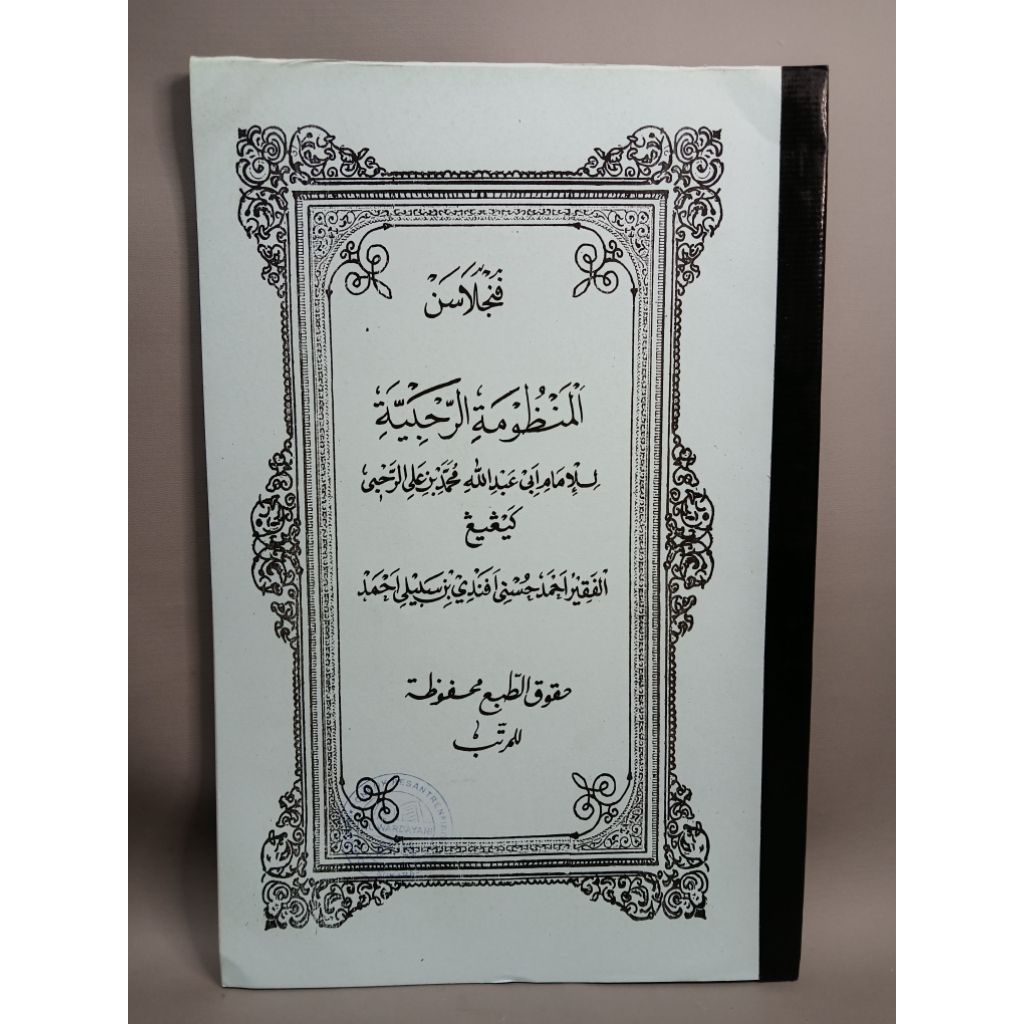 فنجلاسن
اَلْمَنْظُوْمَةِ الرَّحَبِيَّةِ
لِلْإِمَامِ اَبِيْ عَبْدِ اللهِ مُحَمَّدْ بِنْ عَلِى الرَّحْبِى
كَيْڠِيڠْ
الْفَقِيْر اَحْمَدْ حُسْنِى اَفَنْدِيْ بِنْ سَبِيْلِى اَحْمَدْ
حقوق الطبع محفوظة
للمرتب